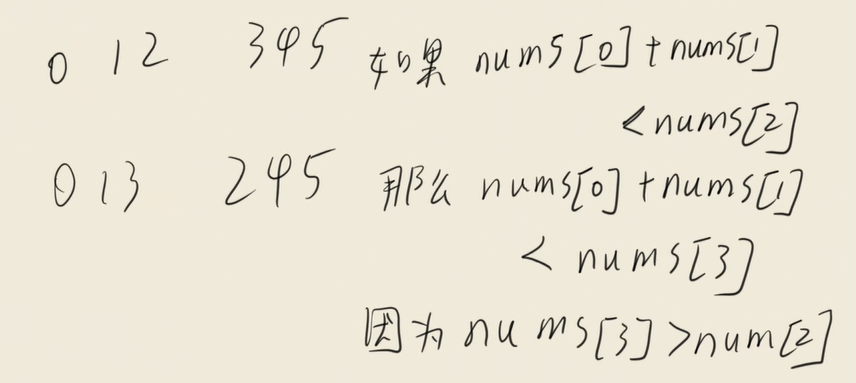 0 12 345 如果 nums[0]+nums[1]
<nums[2]
013 245 那么 nums[0]+nums[1]
< nums[3]
因为 nums[3]>num[2]